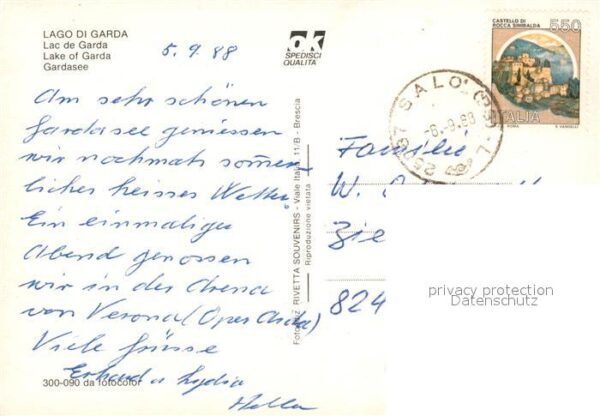 LAGO DI GARDA
Lac de Garda
Lake of Garda
Gardasee
5.9.88
OK
SPEDISCI
QUALITÀ
Am sehr schönen
Gardasee geniessen
wir nochmals sommer
liches heisses Wetter.
Ein einmaliger
Abend genossen
wir in der Arena
von Verona (Oper Aida)
Viele Grüsse
Erhard u Lydia
300-090 da fotocolor
RIVETTA SOUVENIRS - Viale Italia, 11/B - Brescia
Riproduzione vietata
CASTELLO DI
ROCCA SINIBALDA
550
ITALIA
ROMA
SALO' (BS)
25087
-6.-9.88
Familie
W.
Zie
824
privacy protection
Datenschutz